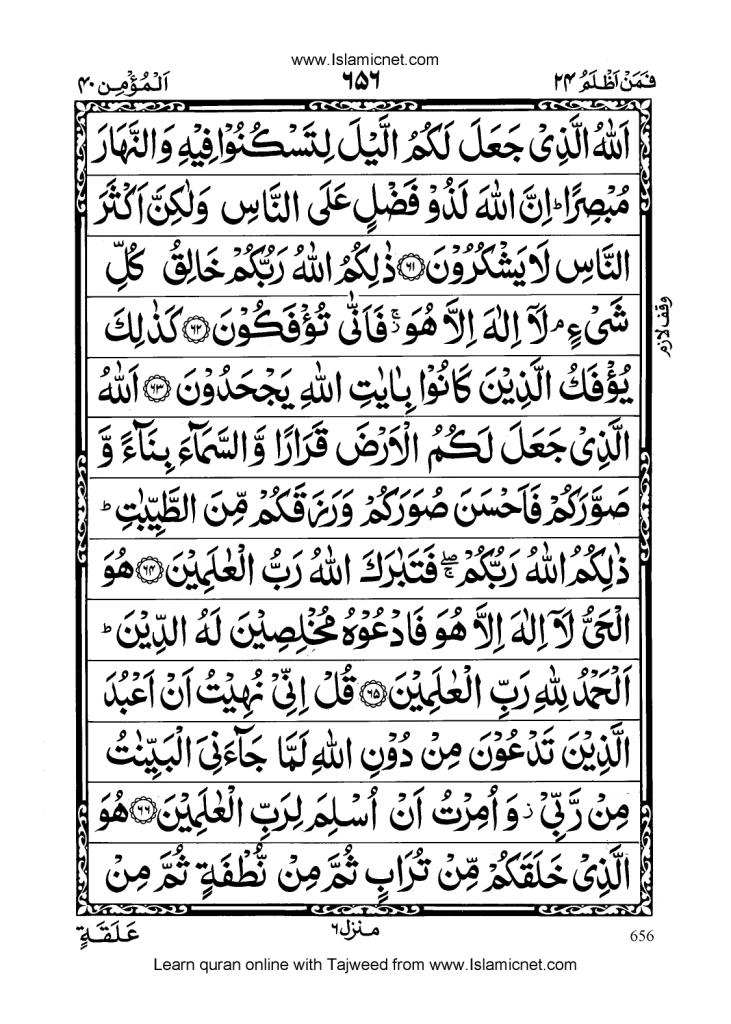 www.Islamicnet.com
فَمَنْ اَظْلَمُ ۲۴
۶۵۶
اَلْمُؤْمِن ۴۰
اَللّٰهُ الَّذِیْ جَعَلَ لَكُمُ الَّیْلَ لِتَسْكُنُوْا فِیْهِ وَالنَّهَارَ
مُبْصِرًا ؕ اِنَّ اللّٰهَ لَذُوْ فَضْلٍ عَلَی النَّاسِ وَلٰكِنَّ اَكْثَرَ
النَّاسِ لَا یَشْكُرُوْنَ ﴿۶۱﴾ ذٰلِكُمُ اللّٰهُ رَبُّكُمْ خَالِقُ كُلِّ
شَیْءٍ ۘ لَاۤ اِلٰهَ اِلَّا هُوَ ۚ۫ فَاَنّٰی تُؤْفَكُوْنَ ﴿۶۲﴾ كَذٰلِكَ
وقف لازم
یُؤْفَكُ الَّذِیْنَ كَانُوْا بِاٰیٰتِ اللّٰهِ یَجْحَدُوْنَ ﴿۶۳﴾ اَللّٰهُ
الَّذِیْ جَعَلَ لَكُمُ الْاَرْضَ قَرَارًا وَّ السَّمَآءَ بِنَآءً وَّ
صَوَّرَكُمْ فَاَحْسَنَ صُوَرَكُمْ وَرَزَقَكُمْ مِّنَ الطَّیِّبٰتِ ؕ
ذٰلِكُمُ اللّٰهُ رَبُّكُمْ ۖۚ فَتَبٰرَكَ اللّٰهُ رَبُّ الْعٰلَمِیْنَ ﴿۶۴﴾ هُوَ
الْحَیُّ لَاۤ اِلٰهَ اِلَّا هُوَ فَادْعُوْهُ مُخْلِصِیْنَ لَهُ الدِّیْنَ ؕ
اَلْحَمْدُ لِلّٰهِ رَبِّ الْعٰلَمِیْنَ ﴿۶۵﴾ قُلْ اِنِّیْ نُهِیْتُ اَنْ اَعْبُدَ
الَّذِیْنَ تَدْعُوْنَ مِنْ دُوْنِ اللّٰهِ لَمَّا جَآءَنِیَ الْبَیِّنٰتُ
مِنْ رَّبِّیْ ۫ وَ اُمِرْتُ اَنْ اُسْلِمَ لِرَبِّ الْعٰلَمِیْنَ ﴿۶۶﴾ هُوَ
الَّذِیْ خَلَقَكُمْ مِّنْ تُرَابٍ ثُمَّ مِنْ نُّطْفَةٍ ثُمَّ مِنْ
656
منزل ۶
عَلَقَةٍ
Learn quran online with Tajweed from www.Islamicnet.com